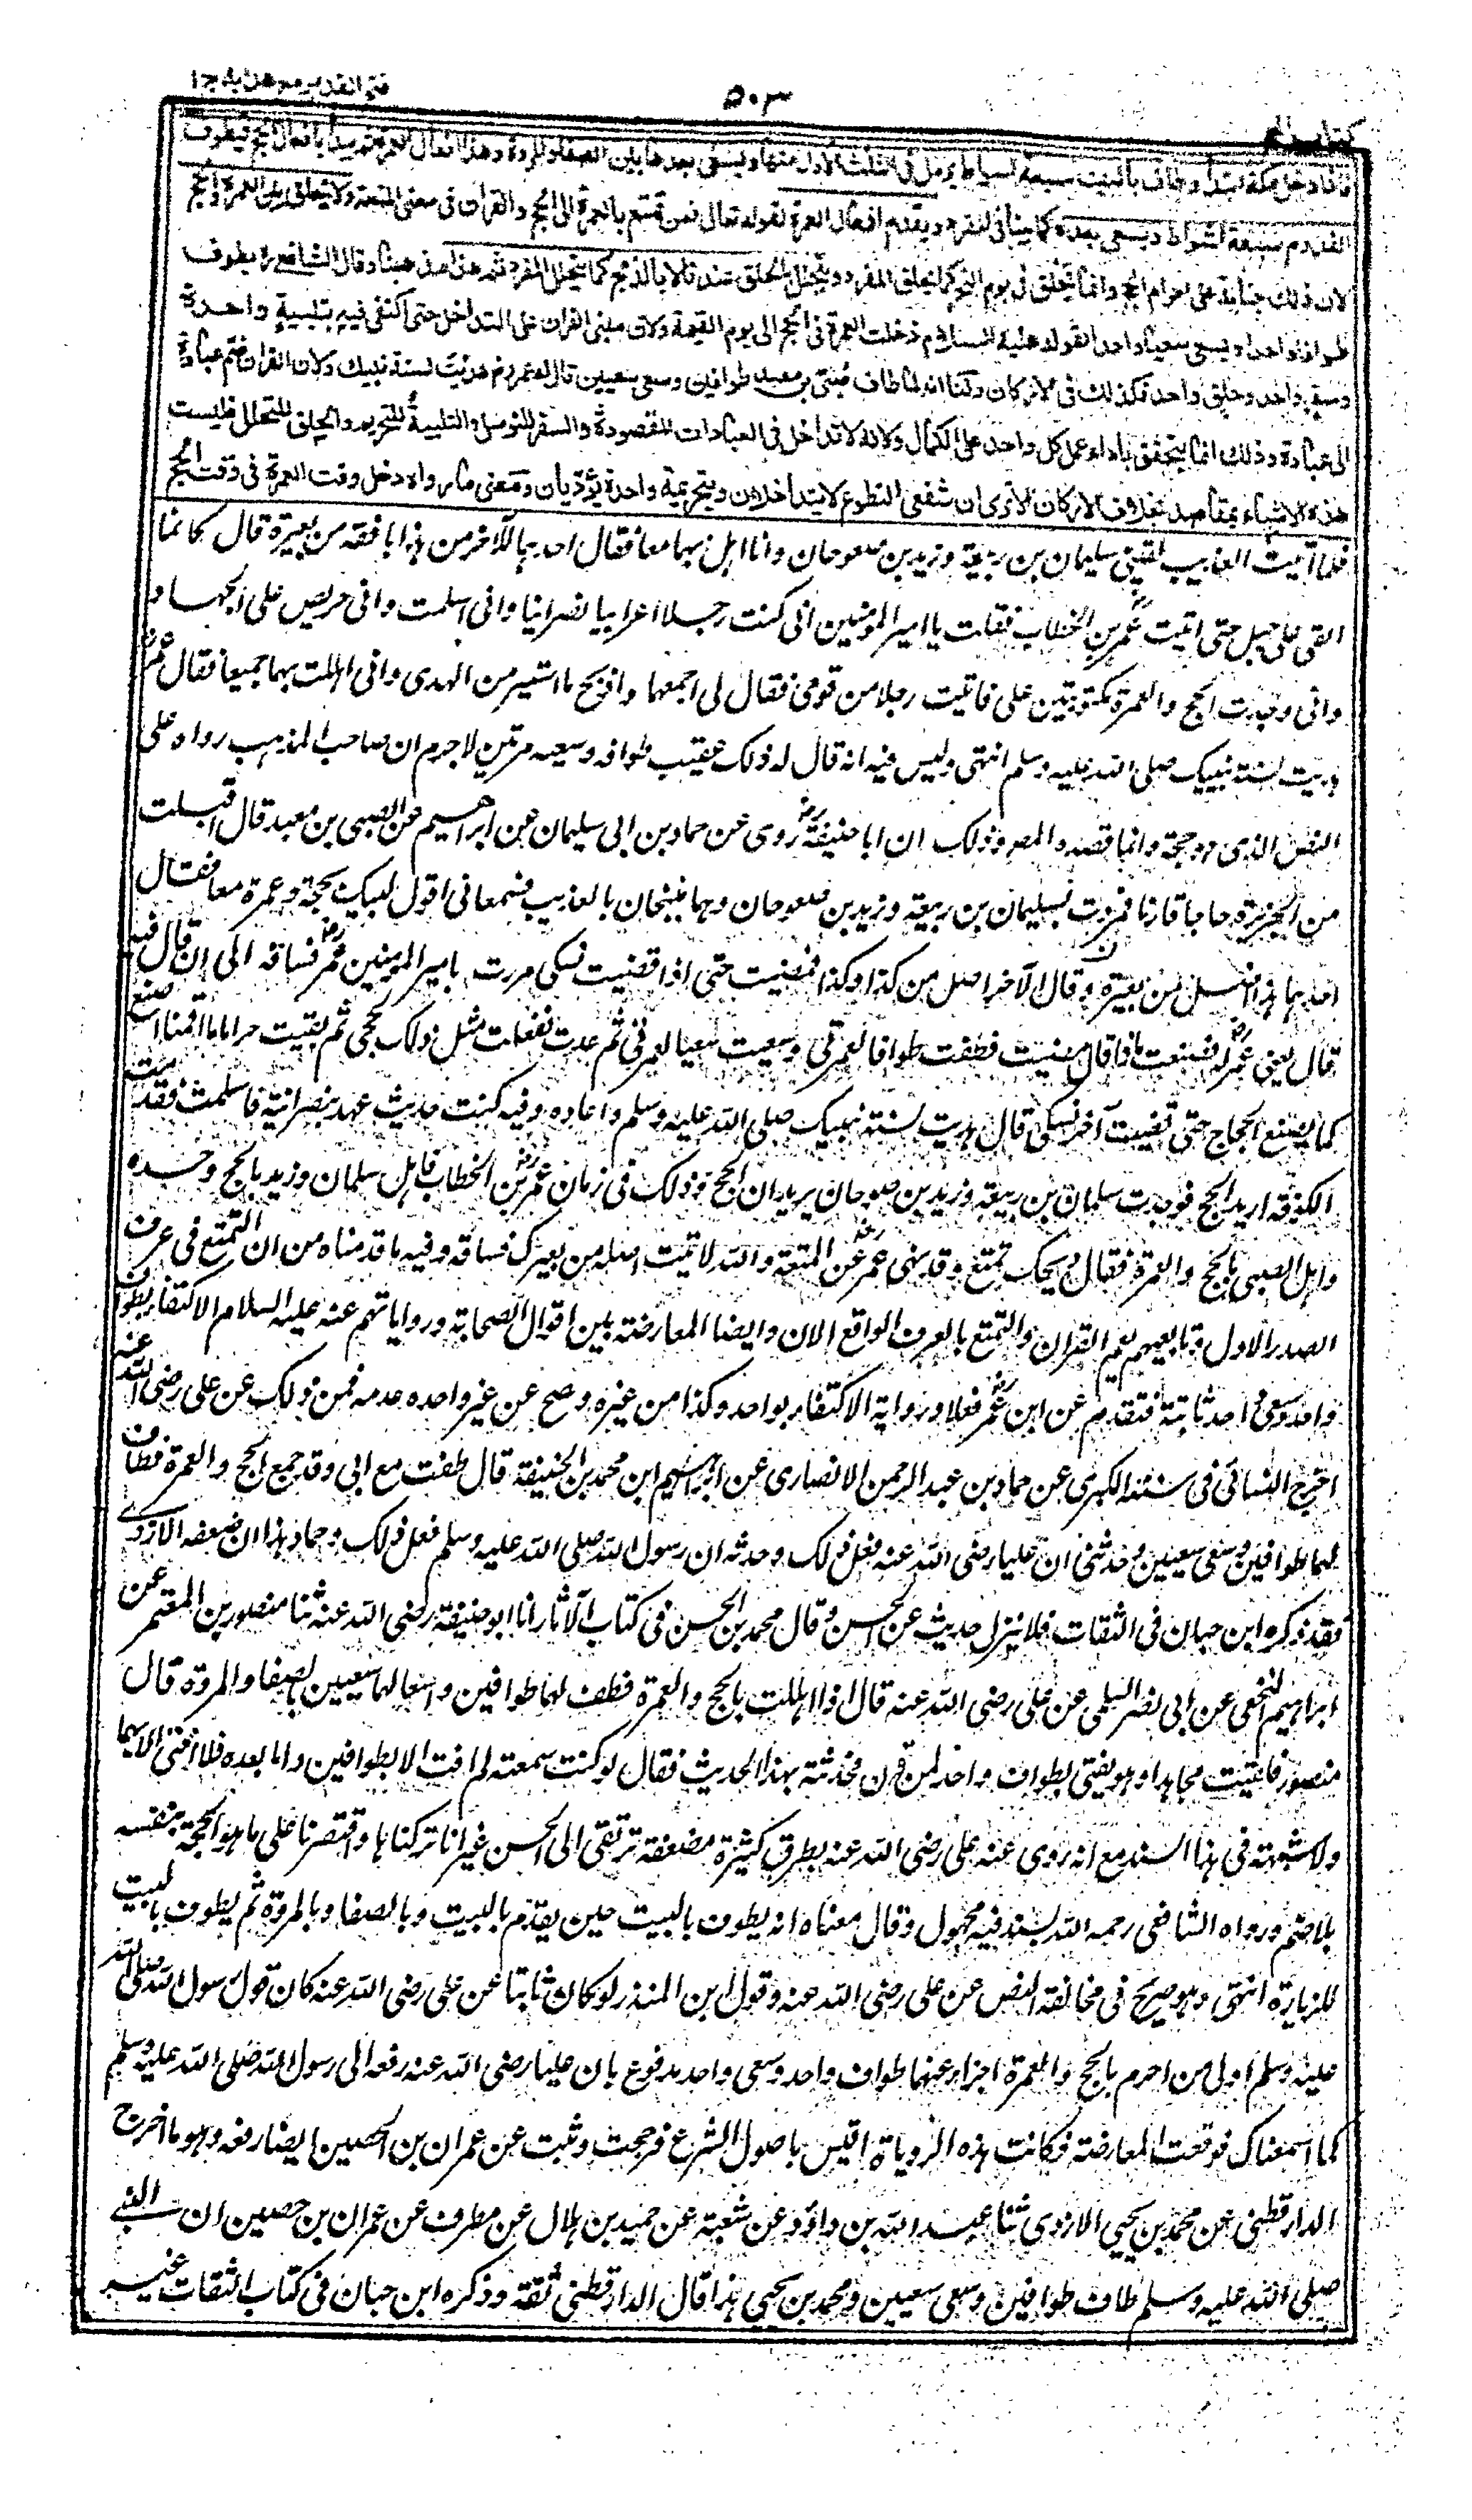 فتح القدير مع هداية ج ١
٥٠٣
كتاب الحج
فاذا دخل مكة ابتدأ وطاف بالبيت سبعة اشواط يرمل في الثلث الاول منها ويسعى بعدها بين الصفا والمروة وهذا افعال العمرة ثم يبدأ بافعال الحج فيطوف
القدوم سبعة اشواط ويسعى بعده كما بينا في المفرد ويقدم افعال العمرة لقوله تعالى فمن تمتع بالعمرة الى الحج والقران في معنى المتعة ولا يحلق بين العمرة والحج
لان ذلك جناية على احرام الحج وانما يحلق في يوم النحر كما يحلق المفرد ويتحلل بالحلق عندنا لا بالذبح كما يتحلل المفرد ثم هذا مذهبنا وقال الشافعي رح يطوف
طوافا واحدا ويسعى سعيا واحدا لقوله عليه السلام دخلت العمرة في الحج الى يوم القيمة ولان مبنى القران على التداخل حتى اكتفى فيه بتلبية واحدة
وسفر واحد وحلق واحد فكذلك في الاركان ولنا انه لما طاف صُبَيّ بن معبد طوافين وسعى سعيين قال له عمر رض هديت لسنة نبيك ولان القران ضم عبادة
الى عبادة وذلك انما يتحقق باداء عمل كل واحد على الكمال ولانه لا تداخل في العبادات المقصودة والسفر للتوسل والتلبية للتحريم والحلق للتحلل فليست
هذه الاشياء بمقاصد بخلاف الاركان الا ترى ان شفعي التطوع لا يتداخلان وبتحريمة واحدة يؤديان ومعنى ما رواه دخل وقت العمرة في وقت الحج
فلما اتيت العذيب لقيني سليمان بن ربيعة وزيد بن صوحان وانا اهل بهما معا فقال احدهما للآخر من هذا بافقه من بعيره قال كانما
القى على جبل حتى اتيت عمر رض بن الخطاب فقلت يا امير المؤمنين اني كنت رجلا اعرابيا نصرانيا واني اسلمت واني حريص على الجهاد و
واني وجدت الحج والعمرة مكتوبتين على فاتيت رجلا من قومي فقال لي اجمعهما واذبح ما استيسر من الهدي واني اهللت بهما جميعا فقال عمر رض
هديت لسنة نبيك صلى الله عليه وسلم انتهى وليس فيه انه قال له ذلك عقيب طوافه وسعيه مرتين لا جرم ان صاحب المذهب رواه على
النص الذي هو حجة وانما قصده المصر وذلك ان ابا حنيفة رح روى عن حماد بن ابي سليمان عن ابراهيم عن الصبي بن معبد قال اقبلت
من الجزيرة حاجا قارنا فمررت بسليمان بن ربيعة وزيد بن صوحان وهما منيخان بالعذيب فسمعاني اقول لبيك بحجة وعمرة معا فقال
احدهما هذا اضل من بعيره وقال الآخر اضل من كذا وكذا فمضيت حتى اذا قضيت نسكي مررت بامير المؤمنين عمر رض فساقه الى ان قال فيه
قال يعني عمر رض له فصنعت ماذا قال مضيت فطفت طوافا لعمرتي وسعيت سعيا لعمرتي ثم عدت ففعلت مثل ذلك لحجي ثم بقيت حراما ما اقمنا اصنع
كما يصنع الحجاج حتى قضيت آخر نسكي قال هديت لسنة نبيك صلى الله عليه وسلم واعاده وفيه كنت حديث عهد بنصرانية فاسلمت فقدمت
الكوفة اريد الحج فوجدت سلمان بن ربيعة وزيد بن صوحان يريدان الحج وذلك في زمان عمر رض بن الخطاب فاهل سلمان وزيد بالحج وحده
واهل الصبي بالحج والعمرة فقالا ويحك تمتع وقد نهى عمر رض عن المتعة والله لانت اضل من بعيرك فساقه وفيه ما قدمناه من ان التمتع في عرف
الصدر الاول وتابعيهم يعم القران والتمتع بالعرف الواقع الان وايضا المعارضة بين اقوال الصحابة ورواياتهم عنه عليه السلام الاكتفاء بطواف
واحد وسعي واحد ثابتة فتقدم عن ابن عمر رض فعلا ورواية الاكتفاء بواحد وكذا من غيره وصح عن غير واحد عدمه فمن ذلك عن علي رضي الله عنه
اخرج النسائي في سننه الكبرى عن حماد بن عبد الرحمن الانصاري عن ابراهيم ابن محمد بن الحنيفة قال طفت مع ابي وقد جمع الحج والعمرة فطاف
لهما طوافين وسعى سعيين وحدثني ان عليا رضي الله عنه فعل ذلك وحدثه ان رسول الله صلى الله عليه وسلم فعل ذلك وحماد هذا ان ضعفه الازدي
فقد ذكره ابن حبان في الثقات فلا ينزل حديثه عن الحسن وقال محمد بن الحسن في كتاب الآثار انا ابو حنيفة رضي الله عنه ثنا منصور بن المعتمر عن
ابراهيم النخعي عن ابي نصر السلمي عن علي رضي الله عنه قال اذا اهللت بالحج والعمرة فطف لهما طوافين واسع لهما سعيين بالصفا والمروة قال
منصور فلقيت مجاهدا وهو يفتي بطواف واحد لمن قرن فحدثته بهذا الحديث فقال لو كنت سمعته لم افت الا بطوافين واما بعده فلا افتي الا بهما
ولا شبهة في هذا السند مع انه روى عنه علي رضي الله عنه بطرق كثيرة مضعفة ترتقي الى الحسن غير انا تركناها واقتصرنا على ما هو الحجة بنفسه
بلا ضم ورواه الشافعي رحمه الله بسند فيه مجهول وقال معناه انه يطوف بالبيت حين يقدم بالبيت وبالصفا وبالمروة ثم يطوف بالبيت
للزيارة انتهى وهو صريح في مخالفة النص عن علي رضي الله عنه وقول ابن المنذر لو كان ثابتا عن علي رضي الله عنه كان قول رسول الله صلى الله
عليه وسلم اولى من احرم بالحج والعمرة اجزاه عنهما طواف واحد وسعي واحد مدفوع بان عليا رضي الله عنه رفعه الى رسول الله صلى الله عليه وسلم
كما اسمعناك فوقعت المعارضة فكانت هذه الرواية اقيس باصول الشرع فرجحت وثبت عن عمران بن الحصين ايضا رفعه وهو ما اخرج
الدارقطني عن محمد بن يحيى الازدي ثنا عبد الله بن داؤد عن شعبة عن حميد بن هلال عن مطرف عن عمران بن حصين ان النبي
صلى الله عليه وسلم طاف طوافين وسعى سعيين ومحمد بن يحيى هذا قال الدارقطني ثقة وذكره ابن حبان في كتاب الثقات غير